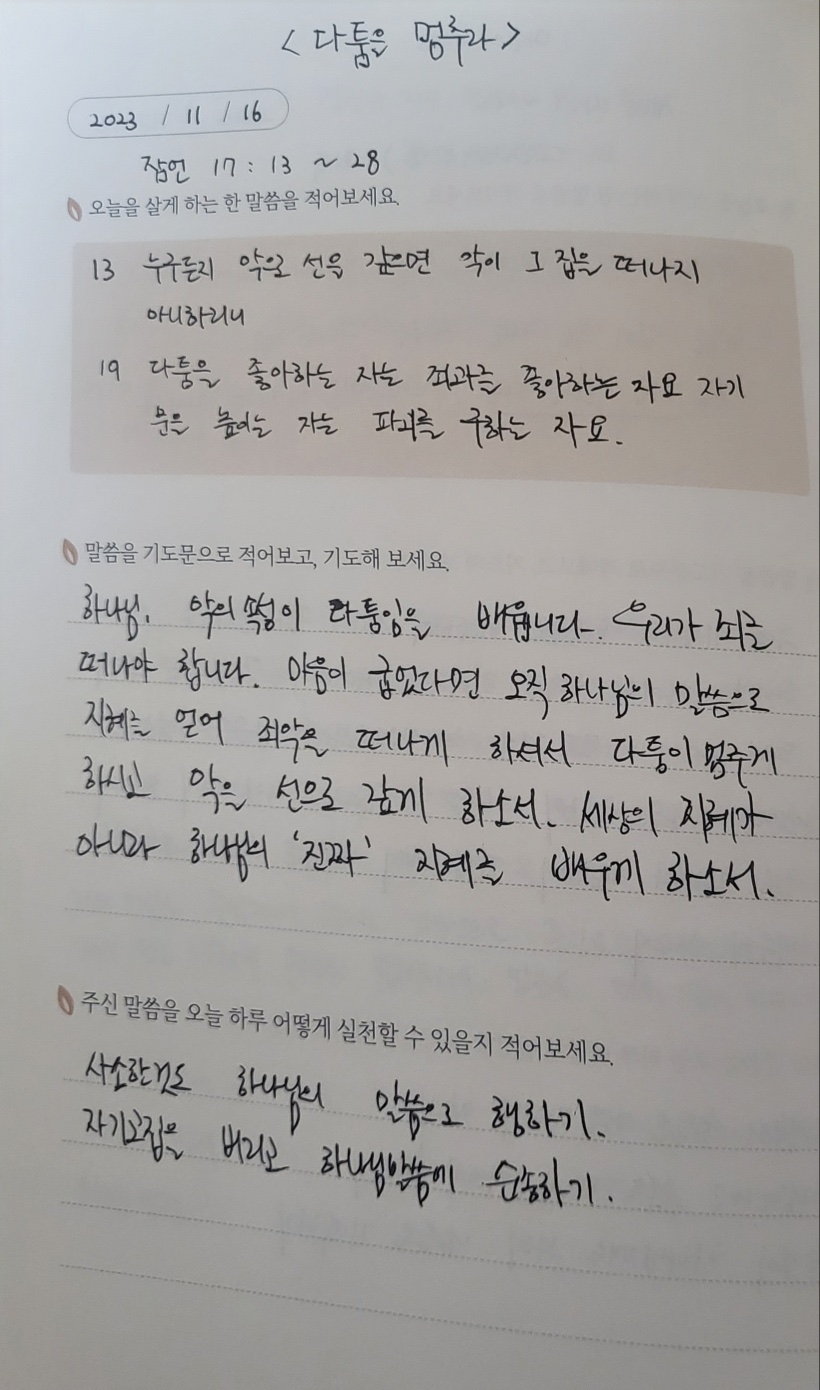 <다툼을 멈추라>
2023 / 11 / 16
잠언 17 : 13 ~ 28
오늘을 살게 하는 한 말씀을 적어보세요.
13 누구든지 악으로 선을 갚으면 악이 그 집을 떠나지
아니하리니
19 다툼을 좋아하는 자는 죄과를 좋아하는 자요 자기
문을 높이는 자는 파괴를 구하는 자요.
말씀을 기도문으로 적어보고, 기도해 보세요.
하나님, 악의 속성이 다툼임을 배웁니다. 우리가 죄를
떠나야 합니다. 마음이 굽었다면 오직 하나님의 말씀으로
지혜를 얻어 죄악을 떠나게 하셔서 다툼이 멈추게
하시고 악을 선으로 갚게 하소서. 세상의 지혜가
아니라 하나님의 '진짜' 지혜를 배우게 하소서.
주신 말씀을 오늘 하루 어떻게 실천할 수 있을지 적어보세요.
사소한것도 하나님의 말씀으로 행하기.
자기고집을 버리고 하나님말씀에 순종하기.